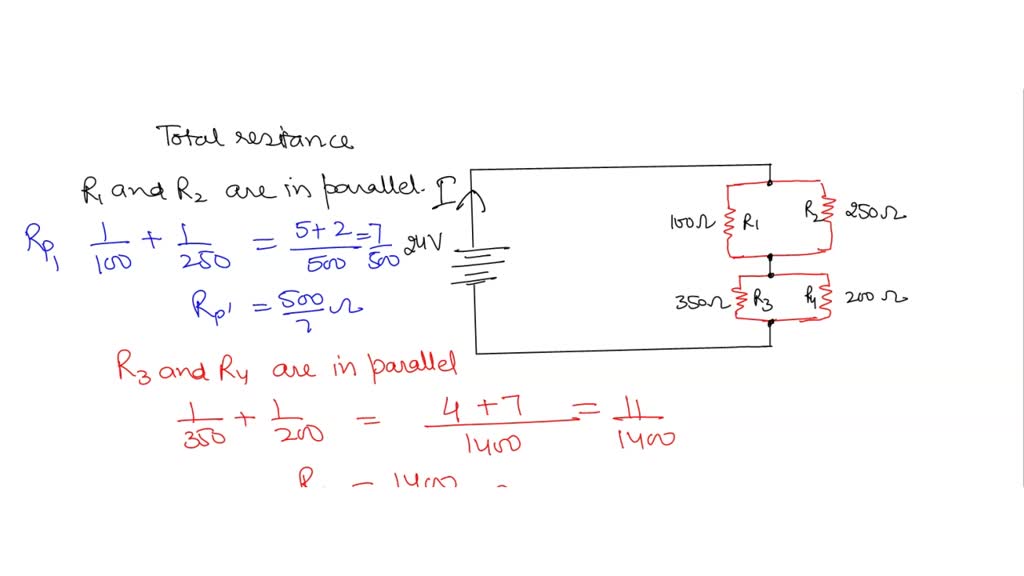 Total resistance
R₁ and R₂ are in parallel. I
Rp₁ 1/100 + 1/250 = 5+2/500 = 7/500 24V
Rp' = 500/7 Ω
R₃ and R₄ are in parallel
1/350 + 1/200 = 4+7/1400 = 11/1400
= 1400
100Ω R₁ R₂ 250Ω
350Ω R₃ R₄ 200Ω